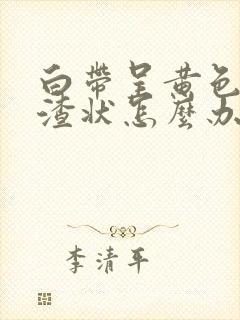 白帶呈黄色
渣状怎麼办
李清平